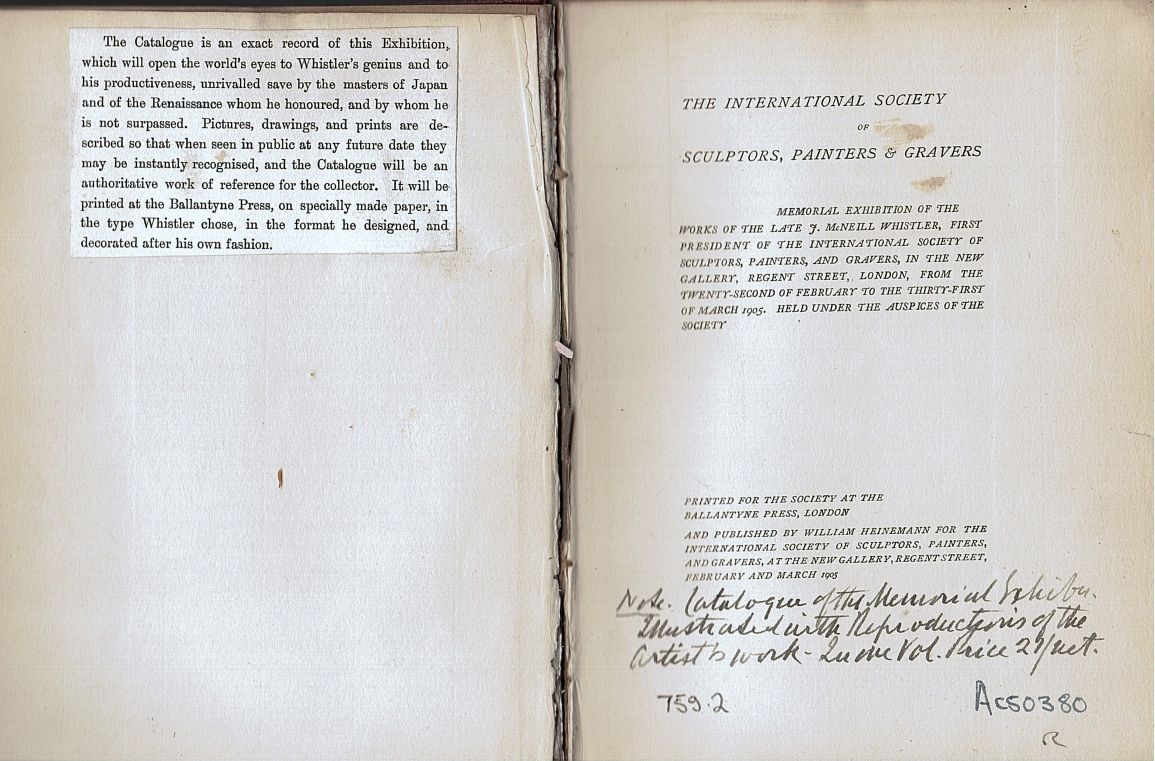 The Catalogue is an exact record of this Exhibition,
which will open the world's eyes to Whistler's genius and to
his productiveness, unrivalled save by the masters of Japan
and of the Renaissance whom he honoured, and by whom he
is not surpassed. Pictures, drawings, and prints are de-
scribed so that when seen in public at any future date they
may be instantly recognised, and the Catalogue will be an
authoritative work of reference for the collector. It will be
printed at the Ballantyne Press, on specially made paper, in
the type Whistler chose, in the format he designed, and
decorated after his own fashion.
THE INTERNATIONAL SOCIETY
OF
SCULPTORS, PAINTERS & GRAVERS
MEMORIAL EXHIBITION OF THE
WORKS OF THE LATE J. McNEILL WHISTLER, FIRST
PRESIDENT OF THE INTERNATIONAL SOCIETY OF
SCULPTORS, PAINTERS, AND GRAVERS, IN THE NEW
GALLERY, REGENT STREET, LONDON, FROM THE
TWENTY-SECOND OF FEBRUARY TO THE THIRTY-FIRST
OF MARCH 1905. HELD UNDER THE AUSPICES OF THE
SOCIETY
PRINTED FOR THE SOCIETY AT THE
BALLANTYNE PRESS, LONDON
AND PUBLISHED BY WILLIAM HEINEMANN FOR THE
INTERNATIONAL SOCIETY OF SCULPTORS, PAINTERS,
AND GRAVERS, AT THE NEW GALLERY, REGENT STREET,
FEBRUARY AND MARCH 1905
Note. Catalogue of the Memorial
Illustrated with Reproductions of the
Artist's work - In one Vol. Price net.
759.2
Ac50380
R